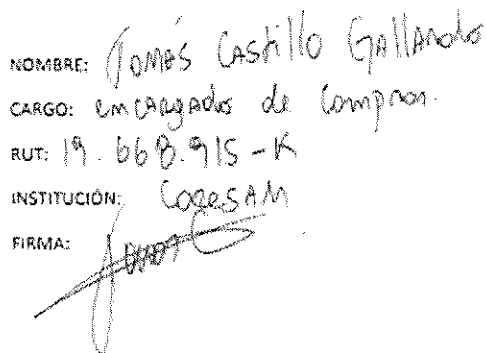 NOMBRE: Tomás Castillo Gallardo
CARGO: encargado de compras.
RUT: 19.668.915-K
INSTITUCIÓN: CORESAM
FIRMA: